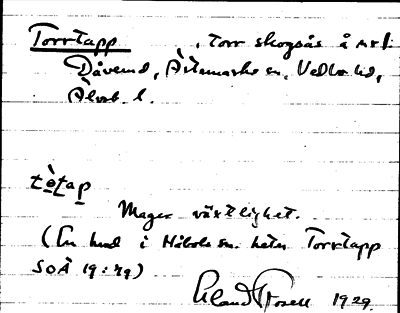 Torrtapp , torr skogsås å nrl.
Dåverud, Ärtemarks sn, Vedbo hd,
Älvsb. l.
tòtap
Mager växtlighet.
(En hmd i Håbols sn. heter Torrtapp
SOÄ 19: 49)
Erland Rosell 1929.